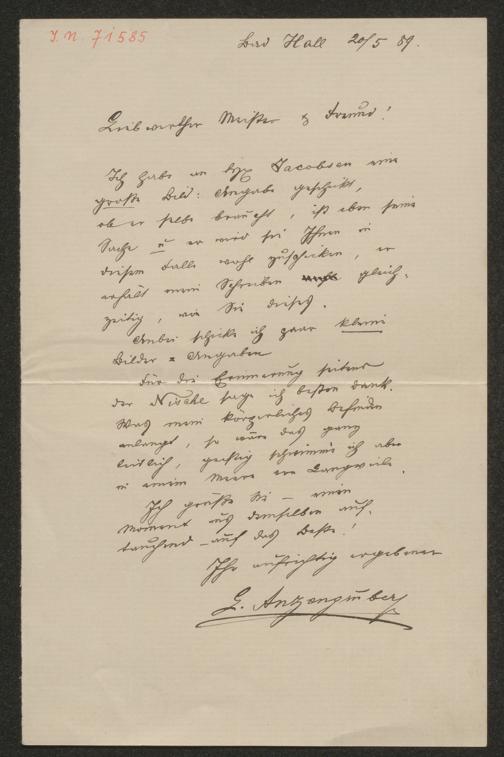 J. N. 71585
Bad Hall 20/5 89.
Liebwerther Meister & Freund!
Ich habe an Jacobsen eine
große Bild: Angabe geschickt,
ob er selbe braucht, ist eben seine
Sache u er wird sie Ihnen in
diesem Falle wohl zuschicken, er
erhält mein Schreiben gleich-
zeitig, wie Sie dieses.
Anbei schicke ich paar kleine
Bilder = Angaben
Für die Erinnerung seitens
der Nische sage ich besten Dank.
Was mein körperliches Befinden
anlangt, so wäre das ganz
leidlich, geistig schwimme ich aber
in einem Meere von Langweile.
Ich grüße Sie – einen
Moment aus demselben auf-
tauchend – auf das Beste!
Ihr aufrichtig ergebener
L. Anzengruber